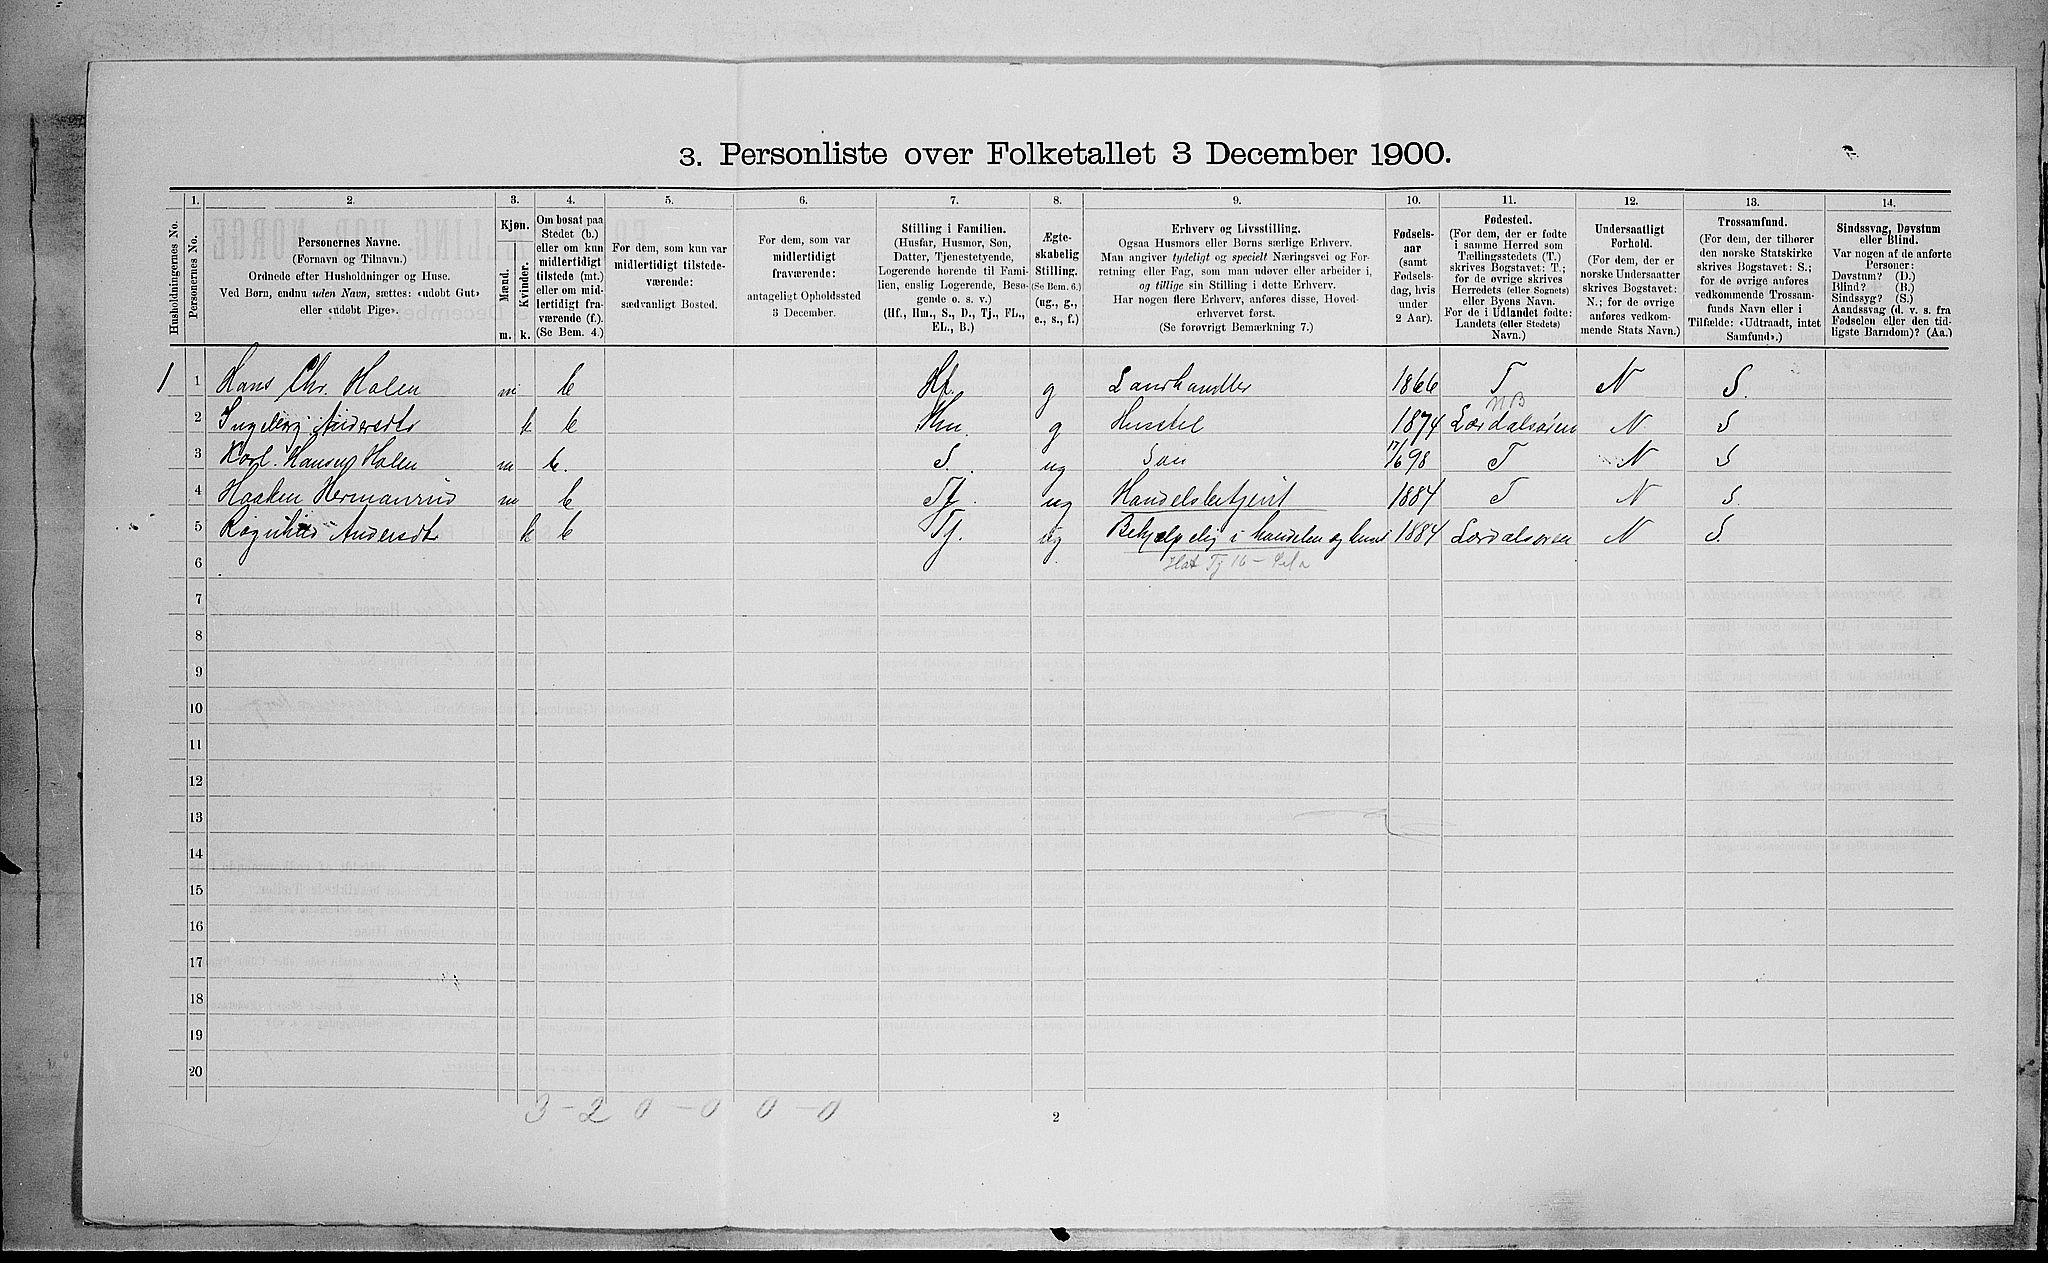 3. Personliste over Folketallet 3 December 1900.
1. 2. 3. 4. 5. 6. 7. 8. 9. 10. 11. 12. 13. 14.
Husholdningernes No.
Personernes No.
Personernes Navne.
(Fornavn og Tilnavn.)
Ordnede efter Husholdninger og Huse.
Ved Børn, endnu uden Navn, sættes: «udøbt Gut»
eller «udøbt Pige».
Kjøn.
Mænd.
Kvinder.
m. k.
Om bosat paa
Stedet (b.)
eller om kun
midlertidigt
tilstede (mt.)
eller om mid-
lertidigt fra-
værende (f.)
(Se Bem. 4.)
For dem, som kun var
midlertidigt tilstede-
værende:
sædvanligt Bosted.
For dem, som var
midlertidigt
fraværende:
antageligt Opholdssted
3 December.
Stilling i Familien.
(Husfar, Husmor, Søn,
Datter, Tjenestetyende,
Logerende hørende til Fami-
lien, enslig Logerende, Besø-
gende o. s. v.)
(Hf., Hm., S., D., Tj., FL.,
EL., B.)
Ægte-
skabelig
Stilling.
(Se Bem. 6.)
(ug., g.,
e., s., f.)
Erhverv og Livsstilling.
Ogsaa Husmors eller Børns særlige Erhverv.
Man angiver tydeligt og specielt Næringsvei og For-
retning eller Fag, som man udøver eller arbeider i,
og tillige sin Stilling i dette Erhverv.
Har nogen flere Erhverv, anføres disse, Hoved-
erhvervet først.
(Se forøvrigt Bemærkning 7.)
Fødsels-
aar
(samt
Fødsels-
dag, hvis
under
2 Aar).
Fødested.
(For dem, der er fødte
i samme Herred som
Tællingsstedets (T.)
skrives Bogstavet: T.;
for de øvrige skrives
Herredets (eller Sognets)
eller Byens Navn.
For de i Udlandet fødte:
Landets (eller Stedets)
Navn.)
Undersaatligt
Forhold.
(For dem, der er
norske Undersaatter
skrives Bogstavet:
N.; for de øvrige
anføres vedkom-
mende Stats Navn.)
Trossamfund.
(For dem, der tilhører
den norske Statskirke
skrives Bogstavet: S.;
for de øvrige anføres
vedkommende Trossam-
funds Navn eller i
Tilfælde: «Udtraadt, intet
Samfund».)
Sindssvag, Døvstum
eller Blind.
Var nogen af de anførte
Personer:
Døvstum? (D.)
Blind? (B.)
Sindssyg? (S.)
Aandssvag (d. v. s. fra
Fødselen eller den tid-
ligste Barndom)? (Aa.)
1 1 Hans Chr. Holen m b Hf. g Landhandler 1866 T N S.
NB
2 Ingeborg Andersdtr k b Hm. g Husstel 1874 Lærdalsøren N S
3 Karl Hansen Holen m b. S. ug Søn 17/6 98 T N S
4 Haaken Hermanrud m b Tj. ug Handelsbetjent 1884 T N S.
5 Ragnhild Andersdtr k b Tj. ug Behjælpelig i handelen og huset 1884 Lærdalsøren N S.
6
7
8
9
10
11
12
13
14
15
16
17
18
19
20
3 - 2 0 - 0 0 - 0
2